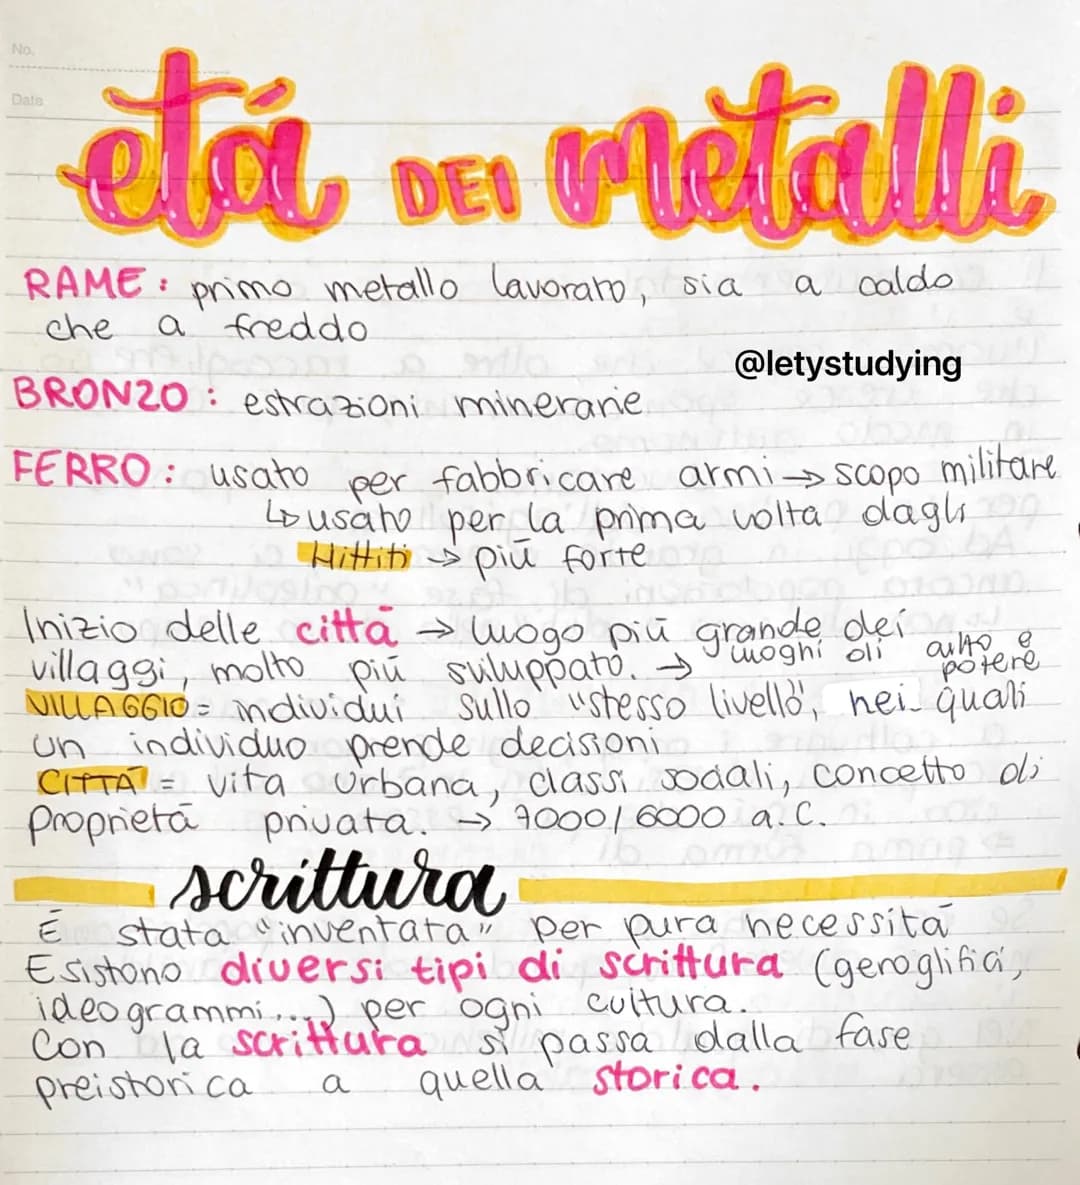 No.
Date
etá DEI metalli
RAME: primo metallo lavorato, sia a caldo
che a freddo
@letystudying
BRONZO: estrazioni minerarie
FERRO: usato per fabbricare armi → scopo militare
↳ usato per la prima volta dagli
Hittiti → più forte
Inizio delle città → luogo più grande dei
villaggi, molto più sviluppato. → luoghi di culto e potere
VILLAGGIO = individui sullo "stesso livello", nei quali
un individuo prende decisioni
CITTÀ = vita urbana, classi sociali, concetto di
proprietà privata. → 7000/6000 a.C.
scrittura
É stata "inventata" per pura necessità
Esistono diversi tipi di scrittura (geroglifici,
ideogrammi...) per ogni cultura.
Con la scrittura si passa dalla fase
preistorica a quella storica.